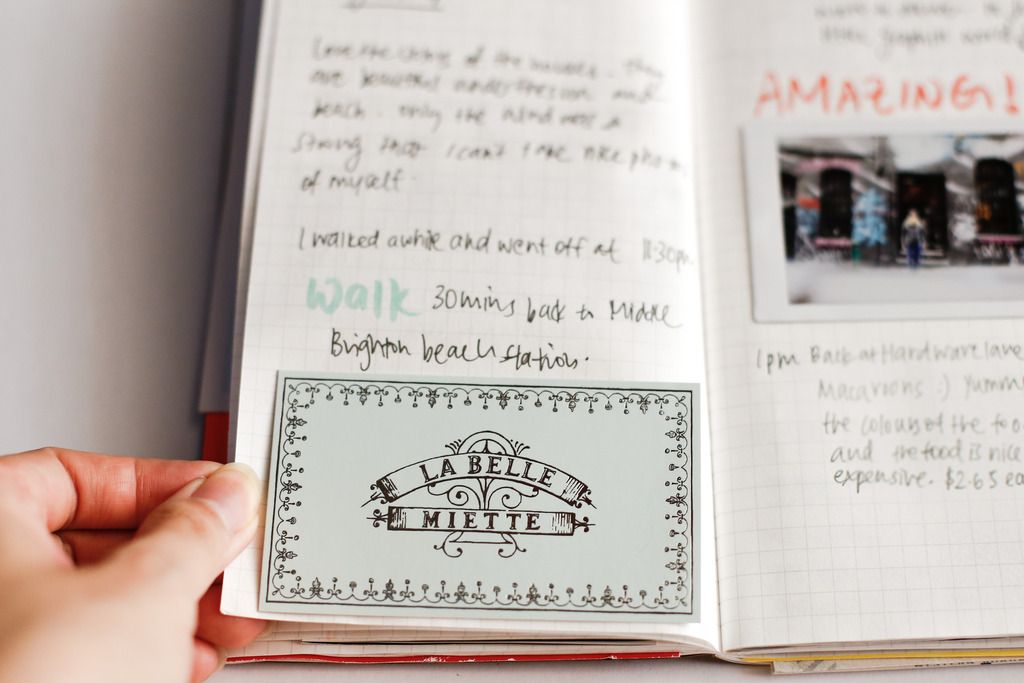 Love the colors of the
are beautiful under the sun and
beach. Only the wind was
strong that I can't take nice
of myself.
I walked awhile and went off at
Walk 30mins back to Middle
Brighton beach station.
LA BELLE
MIETTE
AMAZING!
1pm Back at Hardware lane
Macarons :) Yumm
the colour of the
and the food is nice
expensive. $2.65 ea